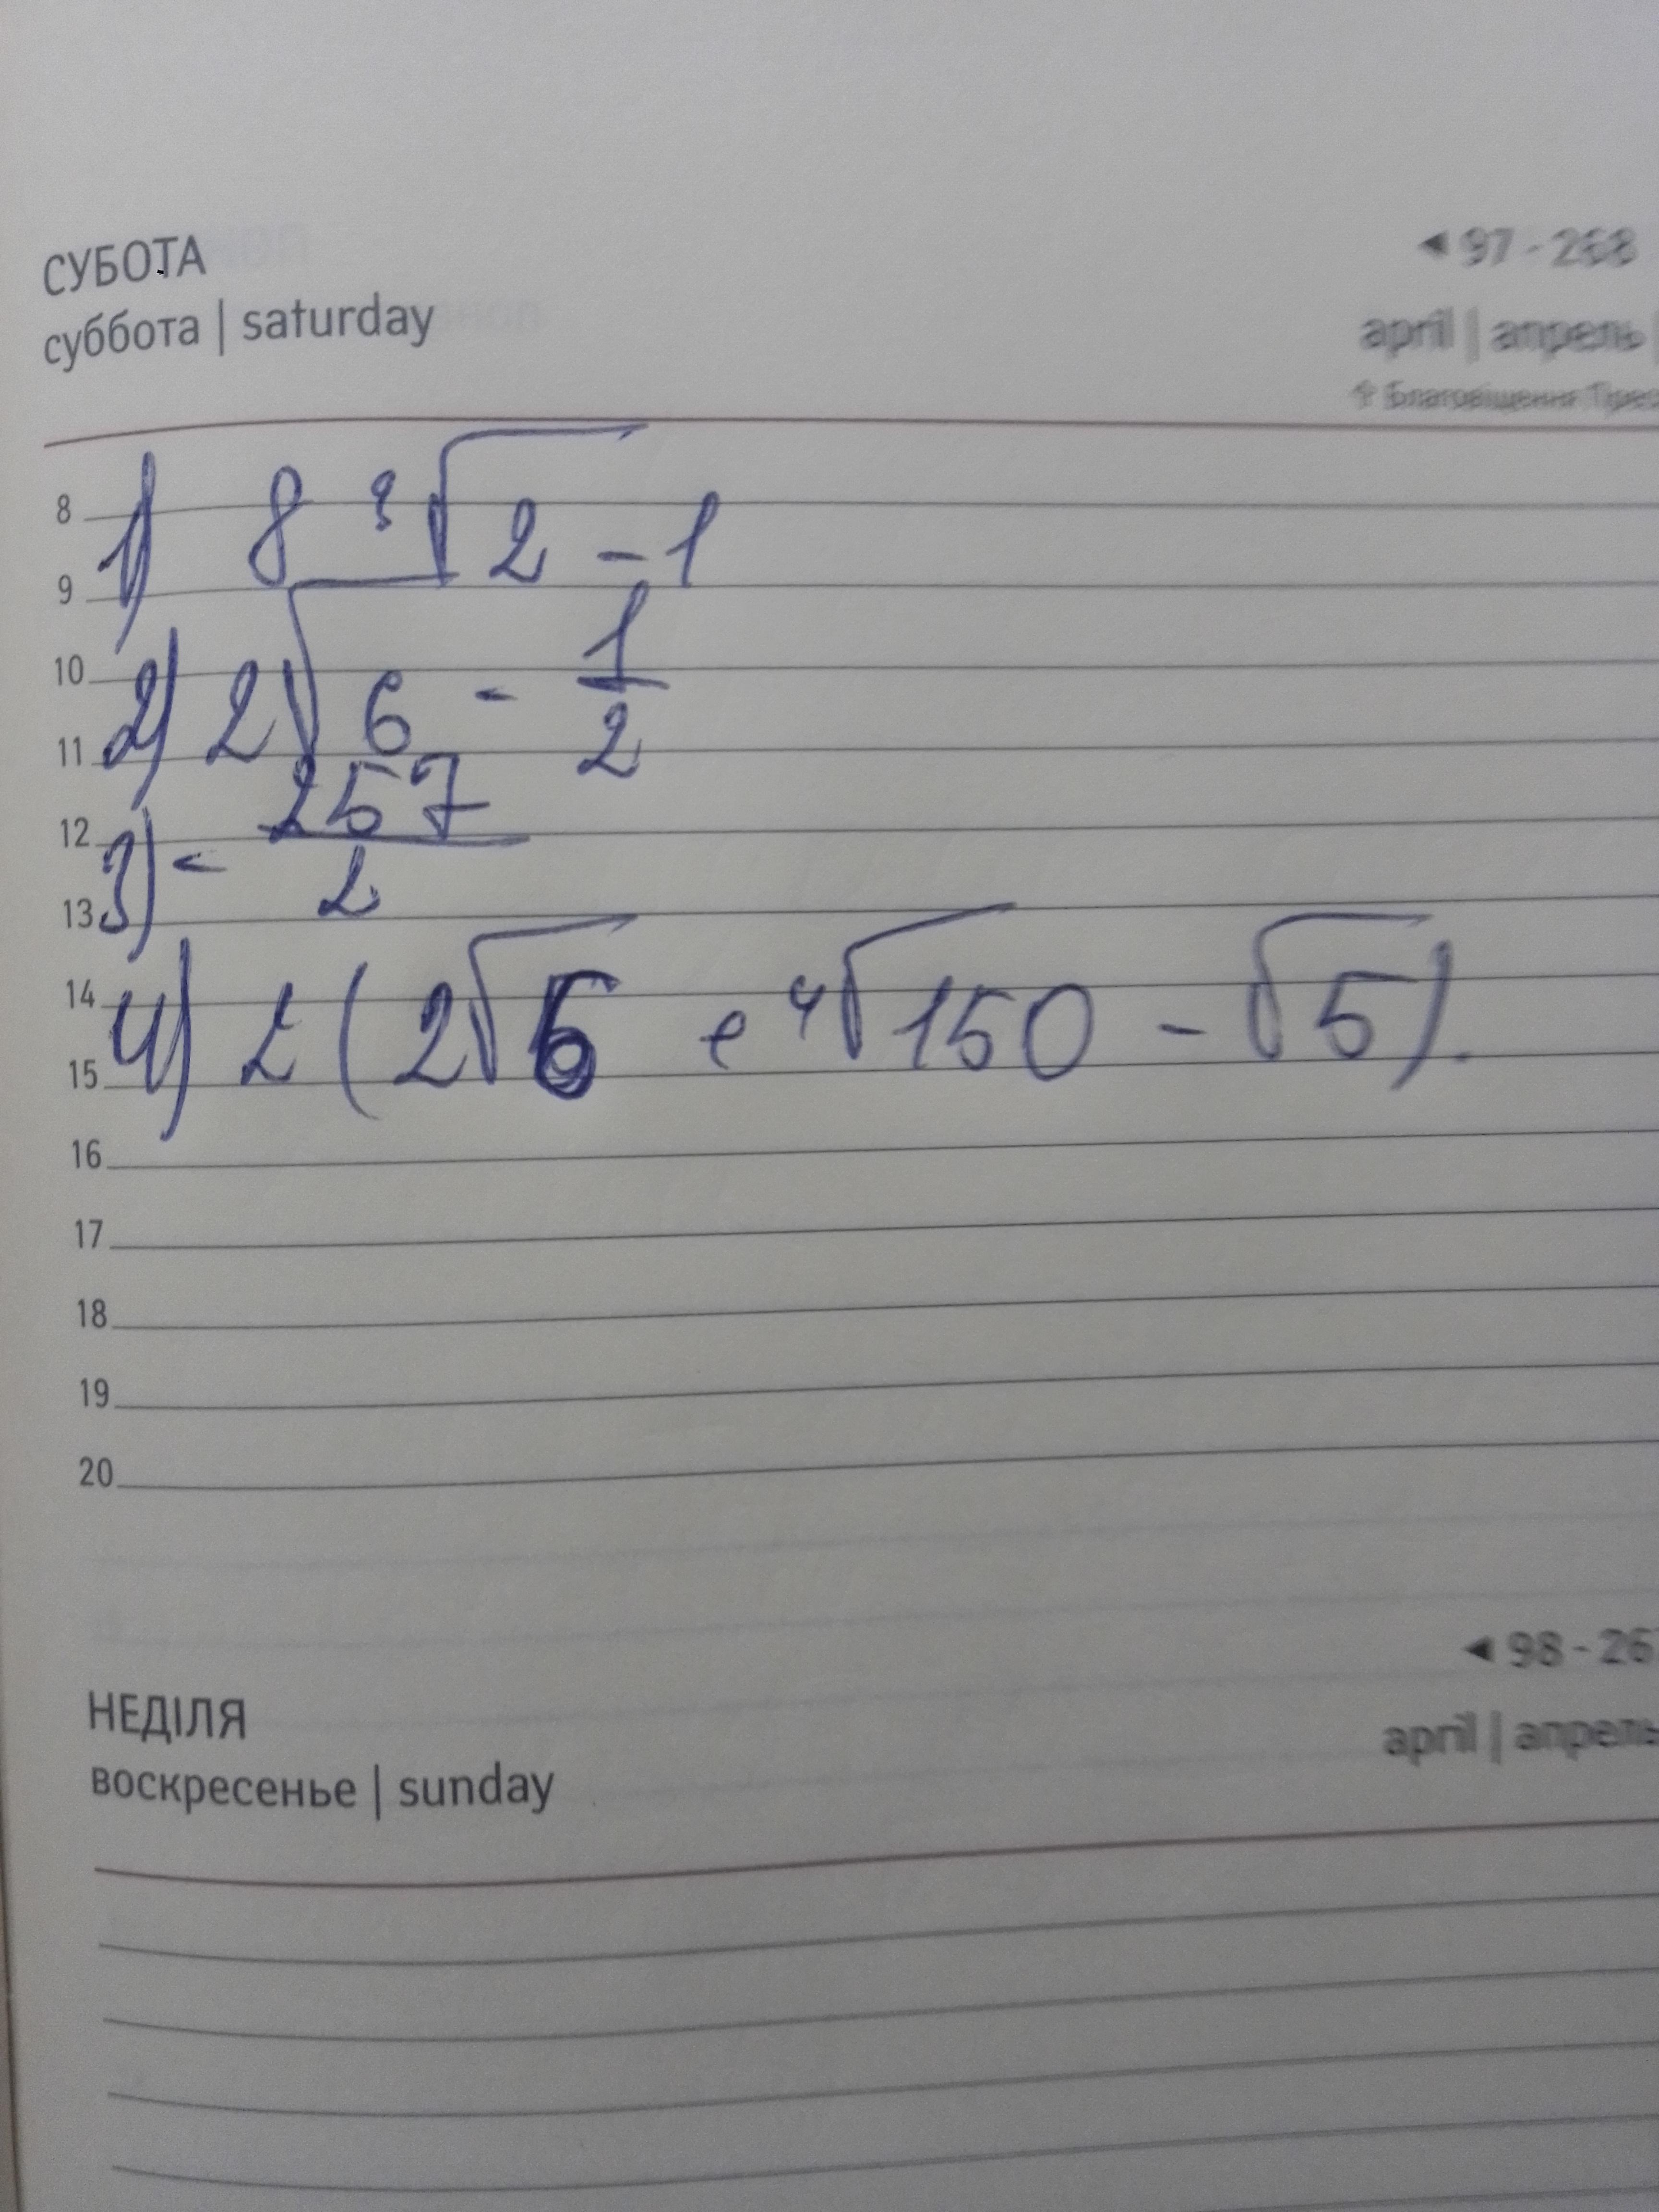 СУБОТА
суббота | saturday
◄ 97 - 268
april | апрель |
✝ Благовіщення Прес
8
9
10
11
12
13
14
15
16
17
18
19
20
1) 8 ³√2 - 1
2) 2√6 - 1/2
3) - 257/2
4) 2 (2√6 e ⁴√150 - √5).
НЕДІЛЯ
воскресенье | sunday
◄ 98 - 267
april | апрель